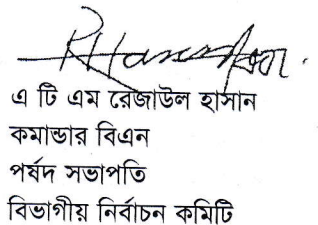 এ টি এম রেজাউল হাসান
কমান্ডার বিএন
পর্ষদ সভাপতি
বিভাগীয় নির্বাচন কমিটি